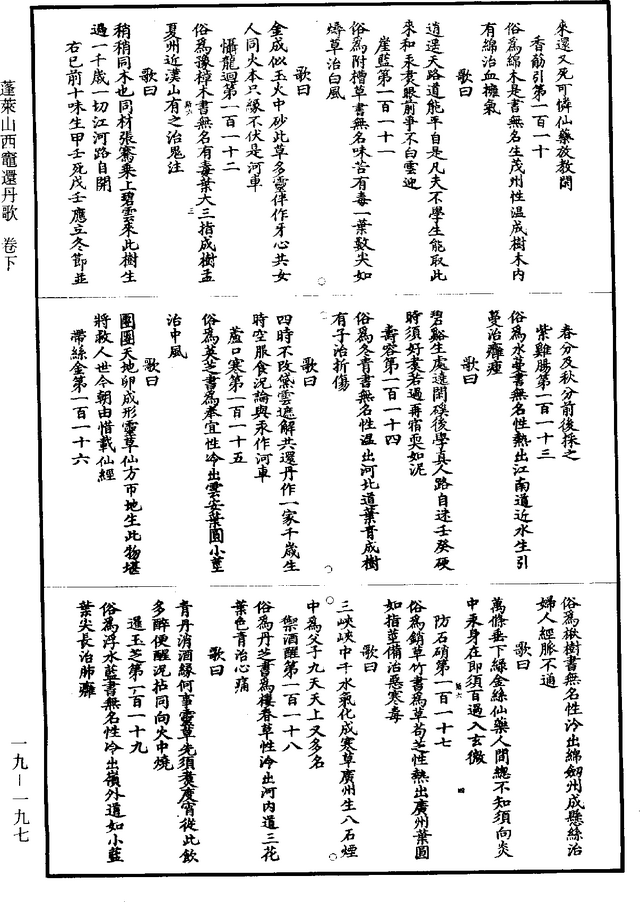 來還又死可憐仙藥放教閑
香筋引第一百一十
俗為綿木是書無名生茂州性温成樹木内
有綿治血擁氣
歌曰
逍遥天路道能平自是凡夫不學生能取此
來和汞煑眼前爭不白雲迎
崖藍第一百一十一
俗為附槽草書無名味苦有毒一葉數尖如
燖草治白風
歌曰
金成似玉火中砂此草多靈伴作牙心共女
人同火本只緣不伏是河車
懾龍迴第一百一十二
俗為豫樟木書無名有毒葉大三指成樹盂
夏州近漢山有之治鬼注
歌曰
稍稍同木也同材張騫乘上碧雲來此樹生
過一千歲一切江河路自開
右已前十味生甲壬死戊壬應立冬節並
春分及秋分前後採之
紫雞腸第一百一十三
俗為水蔓書無名性熱出江南道近水生引
蔓治癰瘇
歌曰
碧谿生處遠閑磎後學真人路自迷壬癸硬
時須好煑若過再宿耎如泥
壽容第一百一十四
俗為冬青書無名性温出河北道葉青成樹
有子治折傷
歌曰
四時不改黛雲遮解共還丹作一家千歲生
時空服食況論與汞作河車
蘆口寒第一百一十五
俗為英芝書為奉宜性冷出雲安葉圓小莖
治中風
歌曰
團團天地卵成形靈草仙方帀地生此物堪
將救人世今朝由惜載仙經
帶絲金第一百一十六
俗為嶽樹書無名性冷出綿劒州成懸絲治
婦人經脈不通
歌曰
萬條垂下綠金絲仙藥人間總不知須向炎
中汞身在即須百過入玄微
防石硝第一百一十七
俗為銷草竹書為草苟芝性熱出廣州葉圓
如指莖備治惡寒毒
歌曰
三峽峽中千水氣化成寒草廣州生八石煙
中為父子九天天上又多名
禦酒醒第一百一十八
俗為丹芝書為樓春草性冷出河内道三花
葉色青治心痛
歌曰
青丹消酒緣何事靈草先須煑度宵從此飲
多醉便醒況拈同向火中燒
暹玉芝第一百一十九
俗為浮水藍書無名性冷出嶺外道如小藍
葉尖長治肺癰
蓬萊山西竈還丹歌 卷下
一九—一九七